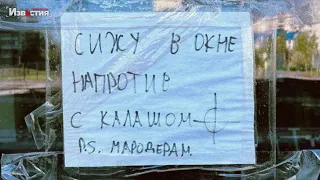 ИЗВЕСТИЯ
СИЖУ В ОКНЕ
НАПРОТИВ
С КАЛАШОМ
P.S. МАРОДЕРАМ.